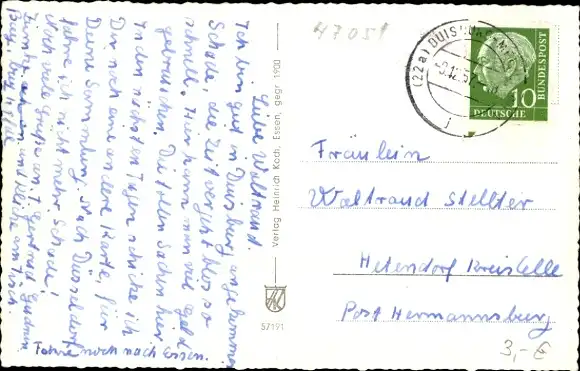 Liebe Waltraud.
Ich bin gut in Duisburg angekommen
Schade, die Zeit vergeht bloß so
schnell. Hier kann man viel Geld
gebrauchen. Die tollen Sachen hier
In den nächsten Tagen schicke ich
Dir noch eine andere Karte, für
Deine Sammlung. Nach Düsseldorf
fahre ich nicht mehr. Schade!
Noch viele Grüße an
und
Fahre noch nach Essen.
Verlag Heinrich Koch, Essen, gegr. 1900
57191
47051
(22a) DUISBURG
10
DEUTSCHE
BUNDESPOST
Fräulein
Waltraud Stellter
Hetendorf Kreis Celle
Post Hermannsburg
3,- €